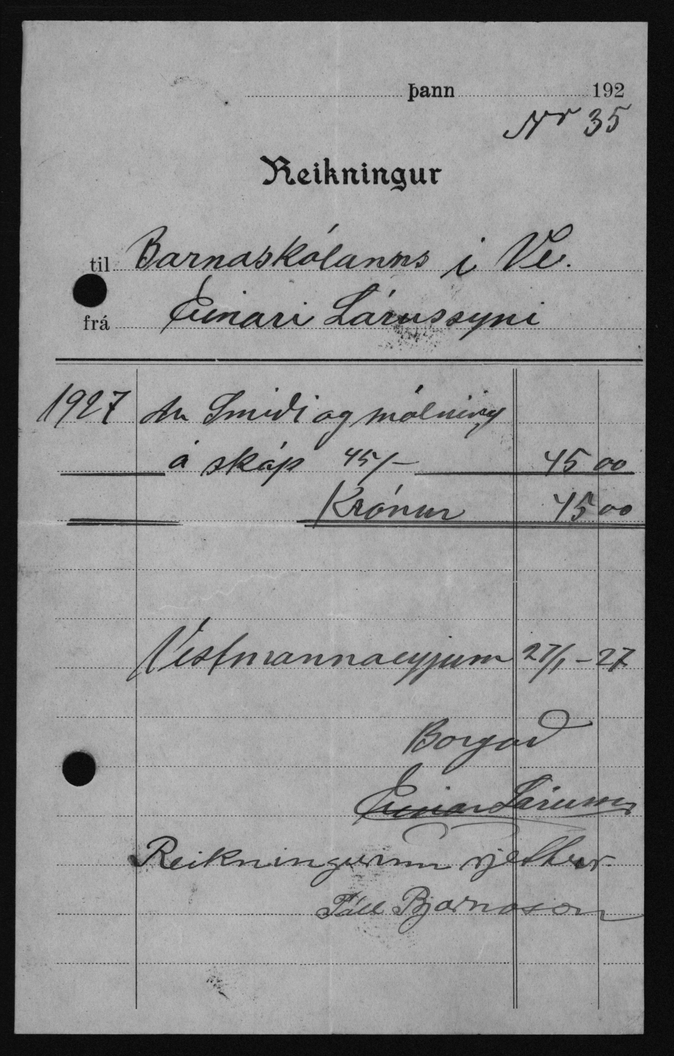 þann 192
Nr 35
Reikningur
til Barnaskólanns í Ve.
frá Einari Lárussyni
1927 Smíði og málning
á skáp 45/- 45 00
Krónur 45 00
Vestmannaeyjum 27/1 - 27
Borgað
Einar Lárusson
Reikningurinn rjettur
Páll Bjarnason